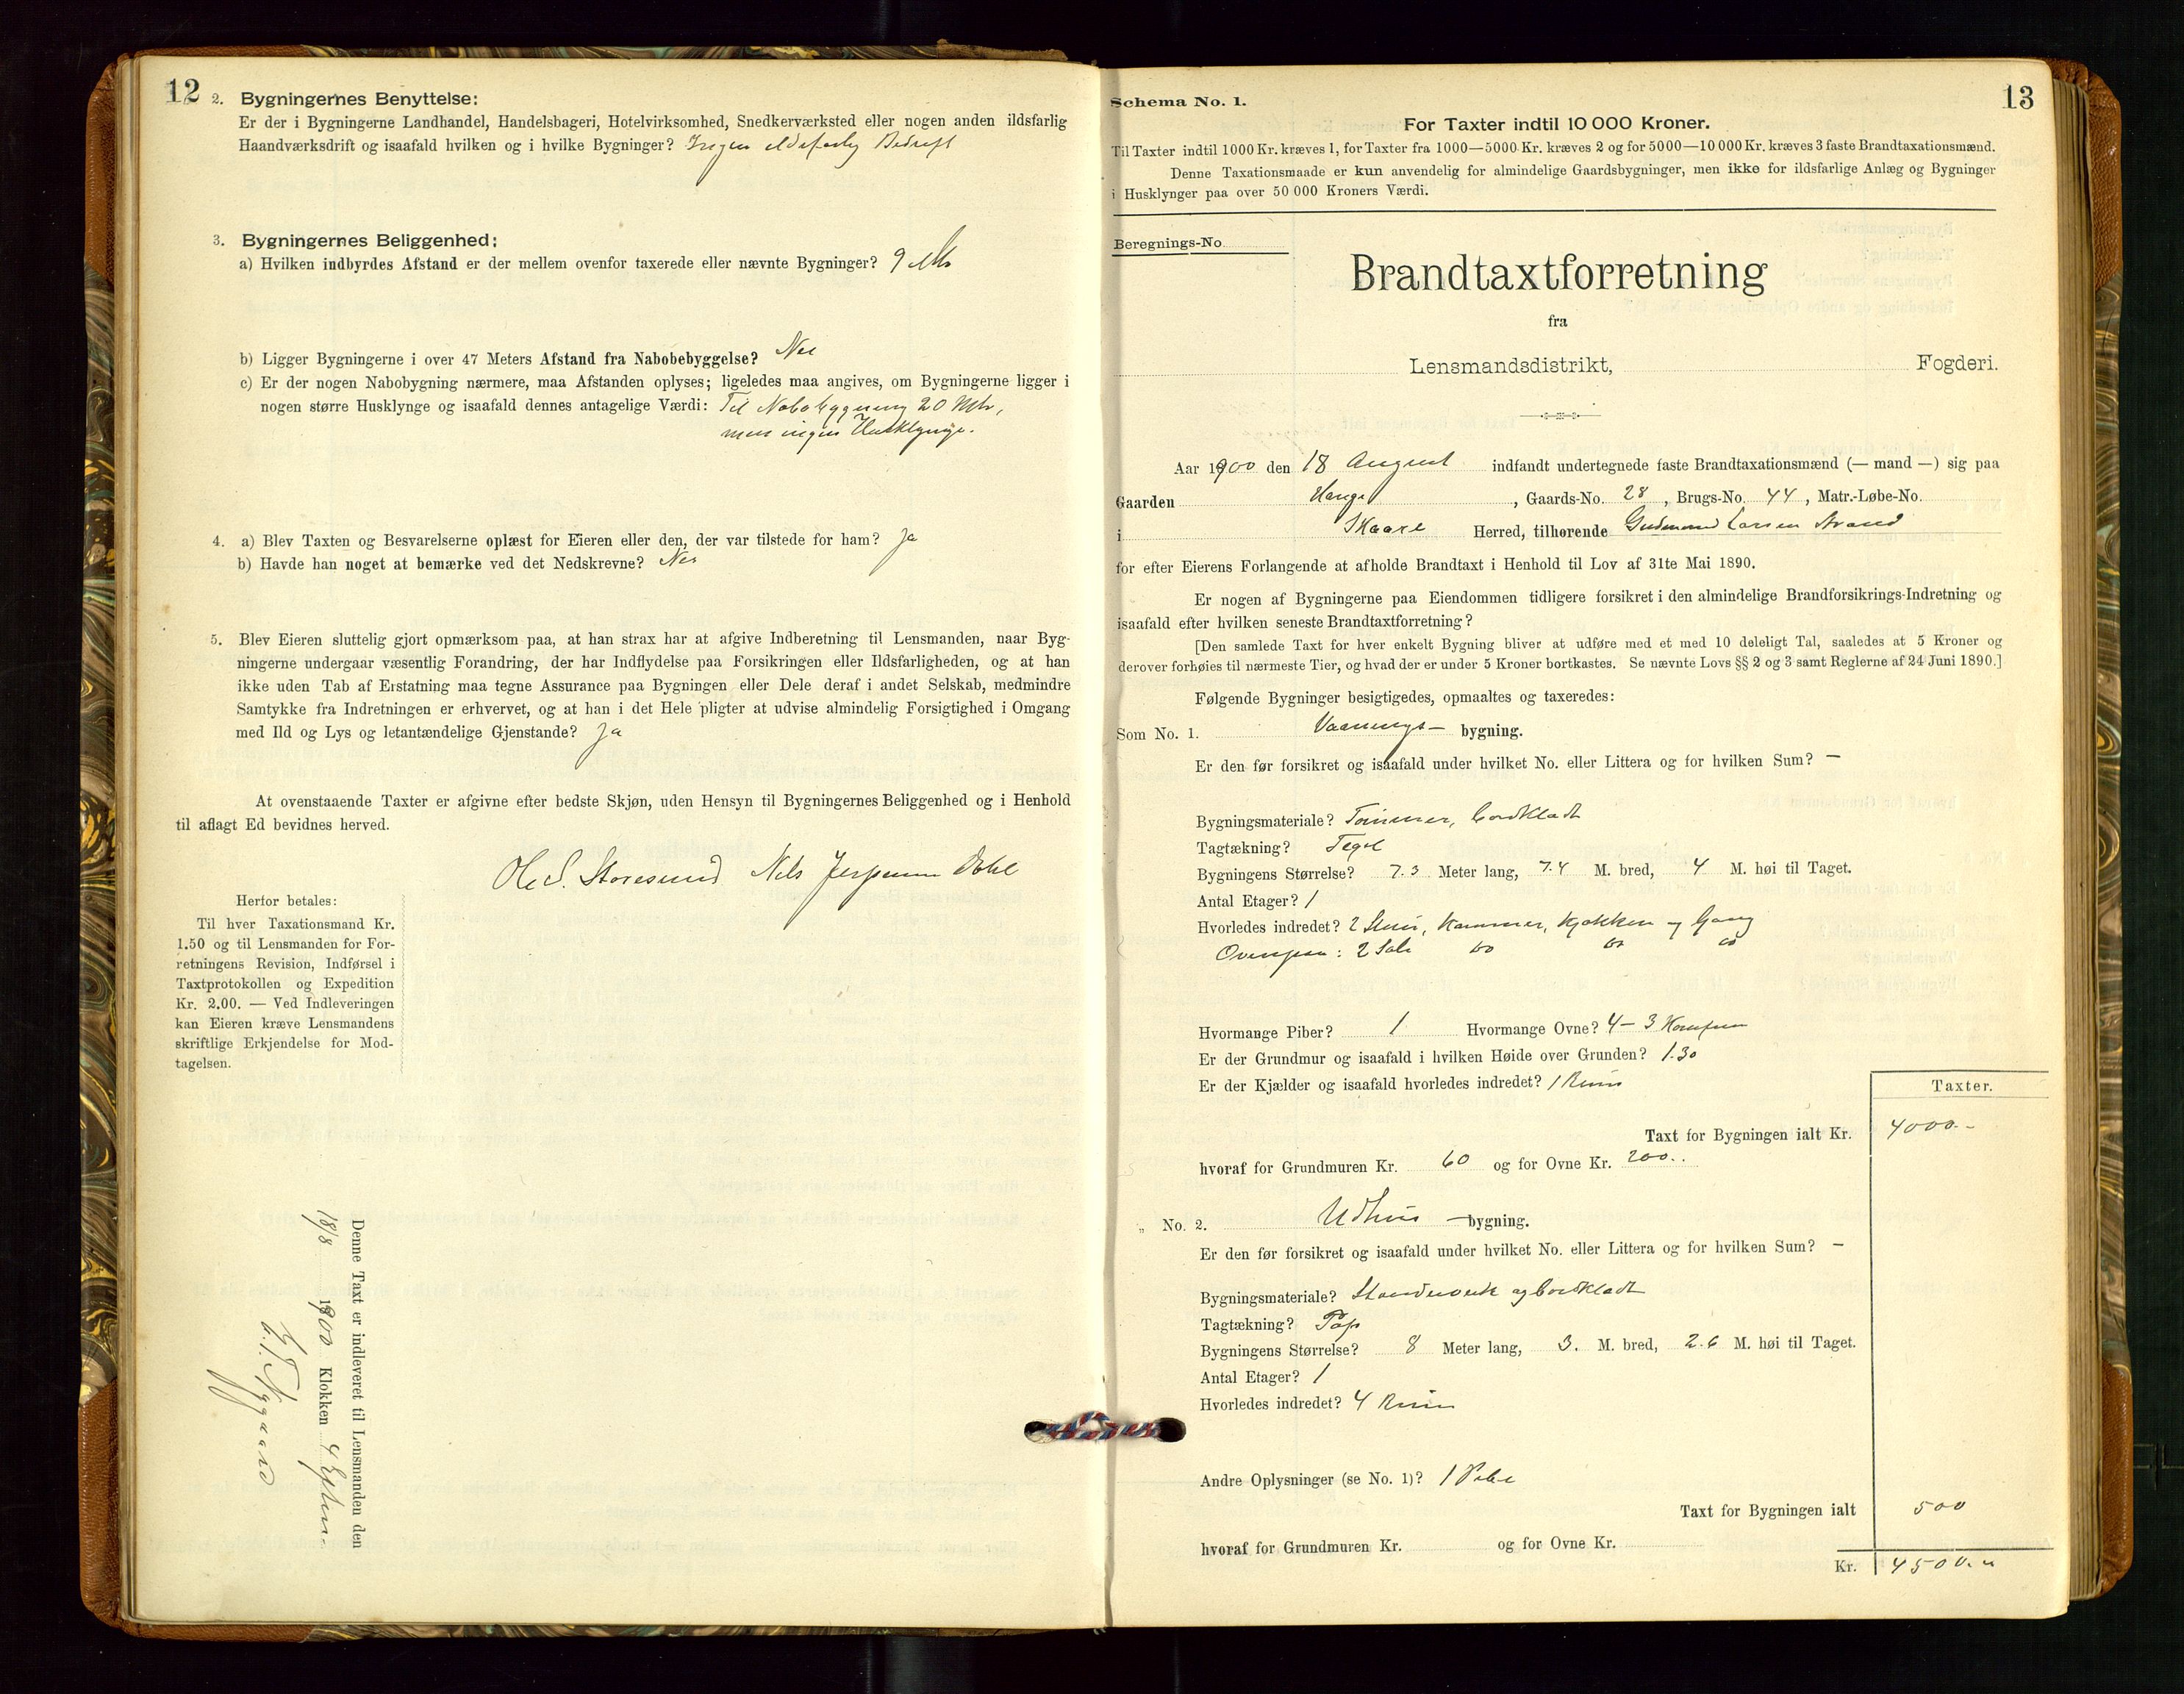 12
2. Bygningernes Benyttelse:
Er der i Bygningerne Landhandel, Handelsbageri, Hotelvirksomhed, Snedkerværksted eller nogen anden ildsfarlig
Haandværksdrift og isaafald hvilken og i hvilke Bygninger? Ingen ildsfarlig Bedrift
3. Bygningernes Beliggenhed:
a) Hvilken indbyrdes Afstand er der mellem ovenfor taxerede eller nævnte Bygninger? 9 Mtr
b) Ligger Bygningerne i over 47 Meters Afstand fra Nabobebyggelse? Nei
c) Er der nogen Nabobygning nærmere, maa Afstanden oplyses; ligeledes maa angives, om Bygningerne ligger i
nogen større Husklynge og isaafald dennes antagelige Værdi: Til Nabobygning 20 Mtr,
men ingen Husklynge.
4. a) Blev Taxten og Besvarelserne oplæst for Eieren eller den, der var tilstede for ham? Ja
b) Havde han noget at bemærke ved det Nedskrevne? Nei
5. Blev Eieren sluttelig gjort opmærksom paa, at han strax har at afgive Indberetning til Lensmanden, naar Byg-
ningerne undergaar væsentlig Forandring, der har Indflydelse paa Forsikringen eller Ildsfarligheden, og at han
ikke uden Tab af Erstatning maa tegne Assurance paa Bygningen eller Dele deraf i andet Selskab, medmindre
Samtykke fra Indretningen er erhvervet, og at han i det Hele pligter at udvise almindelig Forsigtighed i Omgang
med Ild og Lys og letantændelige Gjenstande? Ja
At ovenstaaende Taxter er afgivne efter bedste Skjøn, uden Hensyn til Bygningernes Beliggenhed og i Henhold
til aflagt Ed bevidnes herved.
Ole S. Storesund Nils Jespersen
Herfor betales:
Til hver Taxationsmand Kr.
1.50 og til Lensmanden for For-
retningens Revision, Indførsel i
Taxtprotokollen og Expedition
Kr. 2.00. — Ved Indleveringen
kan Eieren kræve Lensmandens
skriftlige Erkjendelse for Mod-
tagelsen.
Denne Taxt er indleveret til Lensmanden den
18/8 1900 Klokken 4 Efterm.
Nygaard
13
Schema No. 1.
For Taxter indtil 10 000 Kroner.
Til Taxter indtil 1000 Kr. kræves 1, for Taxter fra 1000—5000 Kr. kræves 2 og for 5000—10 000 Kr. kræves 3 faste Brandtaxationsmænd.
Denne Taxationsmaade er kun anvendelig for almindelige Gaardsbygninger, men ikke for ildsfarlige Anlæg og Bygninger
i Husklynger paa over 50 000 Kroners Værdi.
Beregnings-No.
Brandtaxtforretning
fra
Lensmandsdistrikt, Fogderi.
Aar 1900 den 18 August indfandt undertegnede faste Brandtaxationsmænd (— mand —) sig paa
Gaarden Hauge, Gaards-No. 28, Brugs-No. 44, Matr.-Løbe-No.
i Skaare Herred, tilhørende Gudmund Larsen Strand
for efter Eierens Forlangende at afholde Brandtaxt i Henhold til Lov af 31te Mai 1890.
Er nogen af Bygningerne paa Eiendommen tidligere forsikret i den almindelige Brandforsikrings-Indretning og
isaafald efter hvilken seneste Brandtaxtforretning?
[Den samlede Taxt for hver enkelt Bygning bliver at udføre med et med 10 deleligt Tal, saaledes at 5 Kroner og
derover forhøies til nærmeste Tier, og hvad der er under 5 Kroner bortkastes. Se nævnte Lovs §§ 2 og 3 samt Reglerne af 24 Juni 1890.]
Følgende Bygninger besigtigedes, opmaaltes og taxeredes:
Som No. 1. Vaanings— bygning.
Er den før forsikret og isaafald under hvilket No. eller Littera og for hvilken Sum? —
Bygningsmateriale? Tømmer, bordklædt
Tagtækning? Tegl
Bygningens Størrelse? 7.3 Meter lang, 7.4 M. bred, 4 M. høi til Taget.
Antal Etager? 1
Hvorledes indredet? 2 Stuer, Kammer, Kjøkken og Gang
Ovenpaa: 2 Sale do do do
Hvormange Piber? 1 Hvormange Ovne? 4 — 3 Komfur
Er der Grundmur og isaafald i hvilken Høide over Grunden? 1.30
Er der Kjælder og isaafald hvorledes indredet? 1 Rum
Taxter.
Taxt for Bygningen ialt Kr. 4000.-
hvoraf for Grundmuren Kr. 60 og for Ovne Kr. 200..
„ No. 2. Udhus —bygning.
Er den før forsikret og isaafald under hvilket No. eller Littera og for hvilken Sum? —
Bygningsmateriale? Standerværk og bordklædt
Tagtækning? Pap
Bygningens Størrelse? 8 Meter lang, 3. M. bred, 2.6 M. høi til Taget.
Antal Etager? 1
Hvorledes indredet? 4 Rum
Andre Oplysninger (se No. 1)? 1 Pibe
Taxt for Bygningen ialt 500
hvoraf for Grundmuren Kr. og for Ovne Kr.
Kr. 4500.